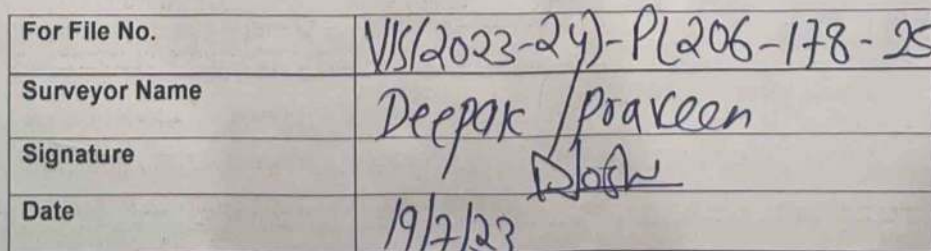 For File No. VIS(2023-24)-PL206-178-25
Surveyor Name Deepak / Praveen
Signature
Date 19/7/23